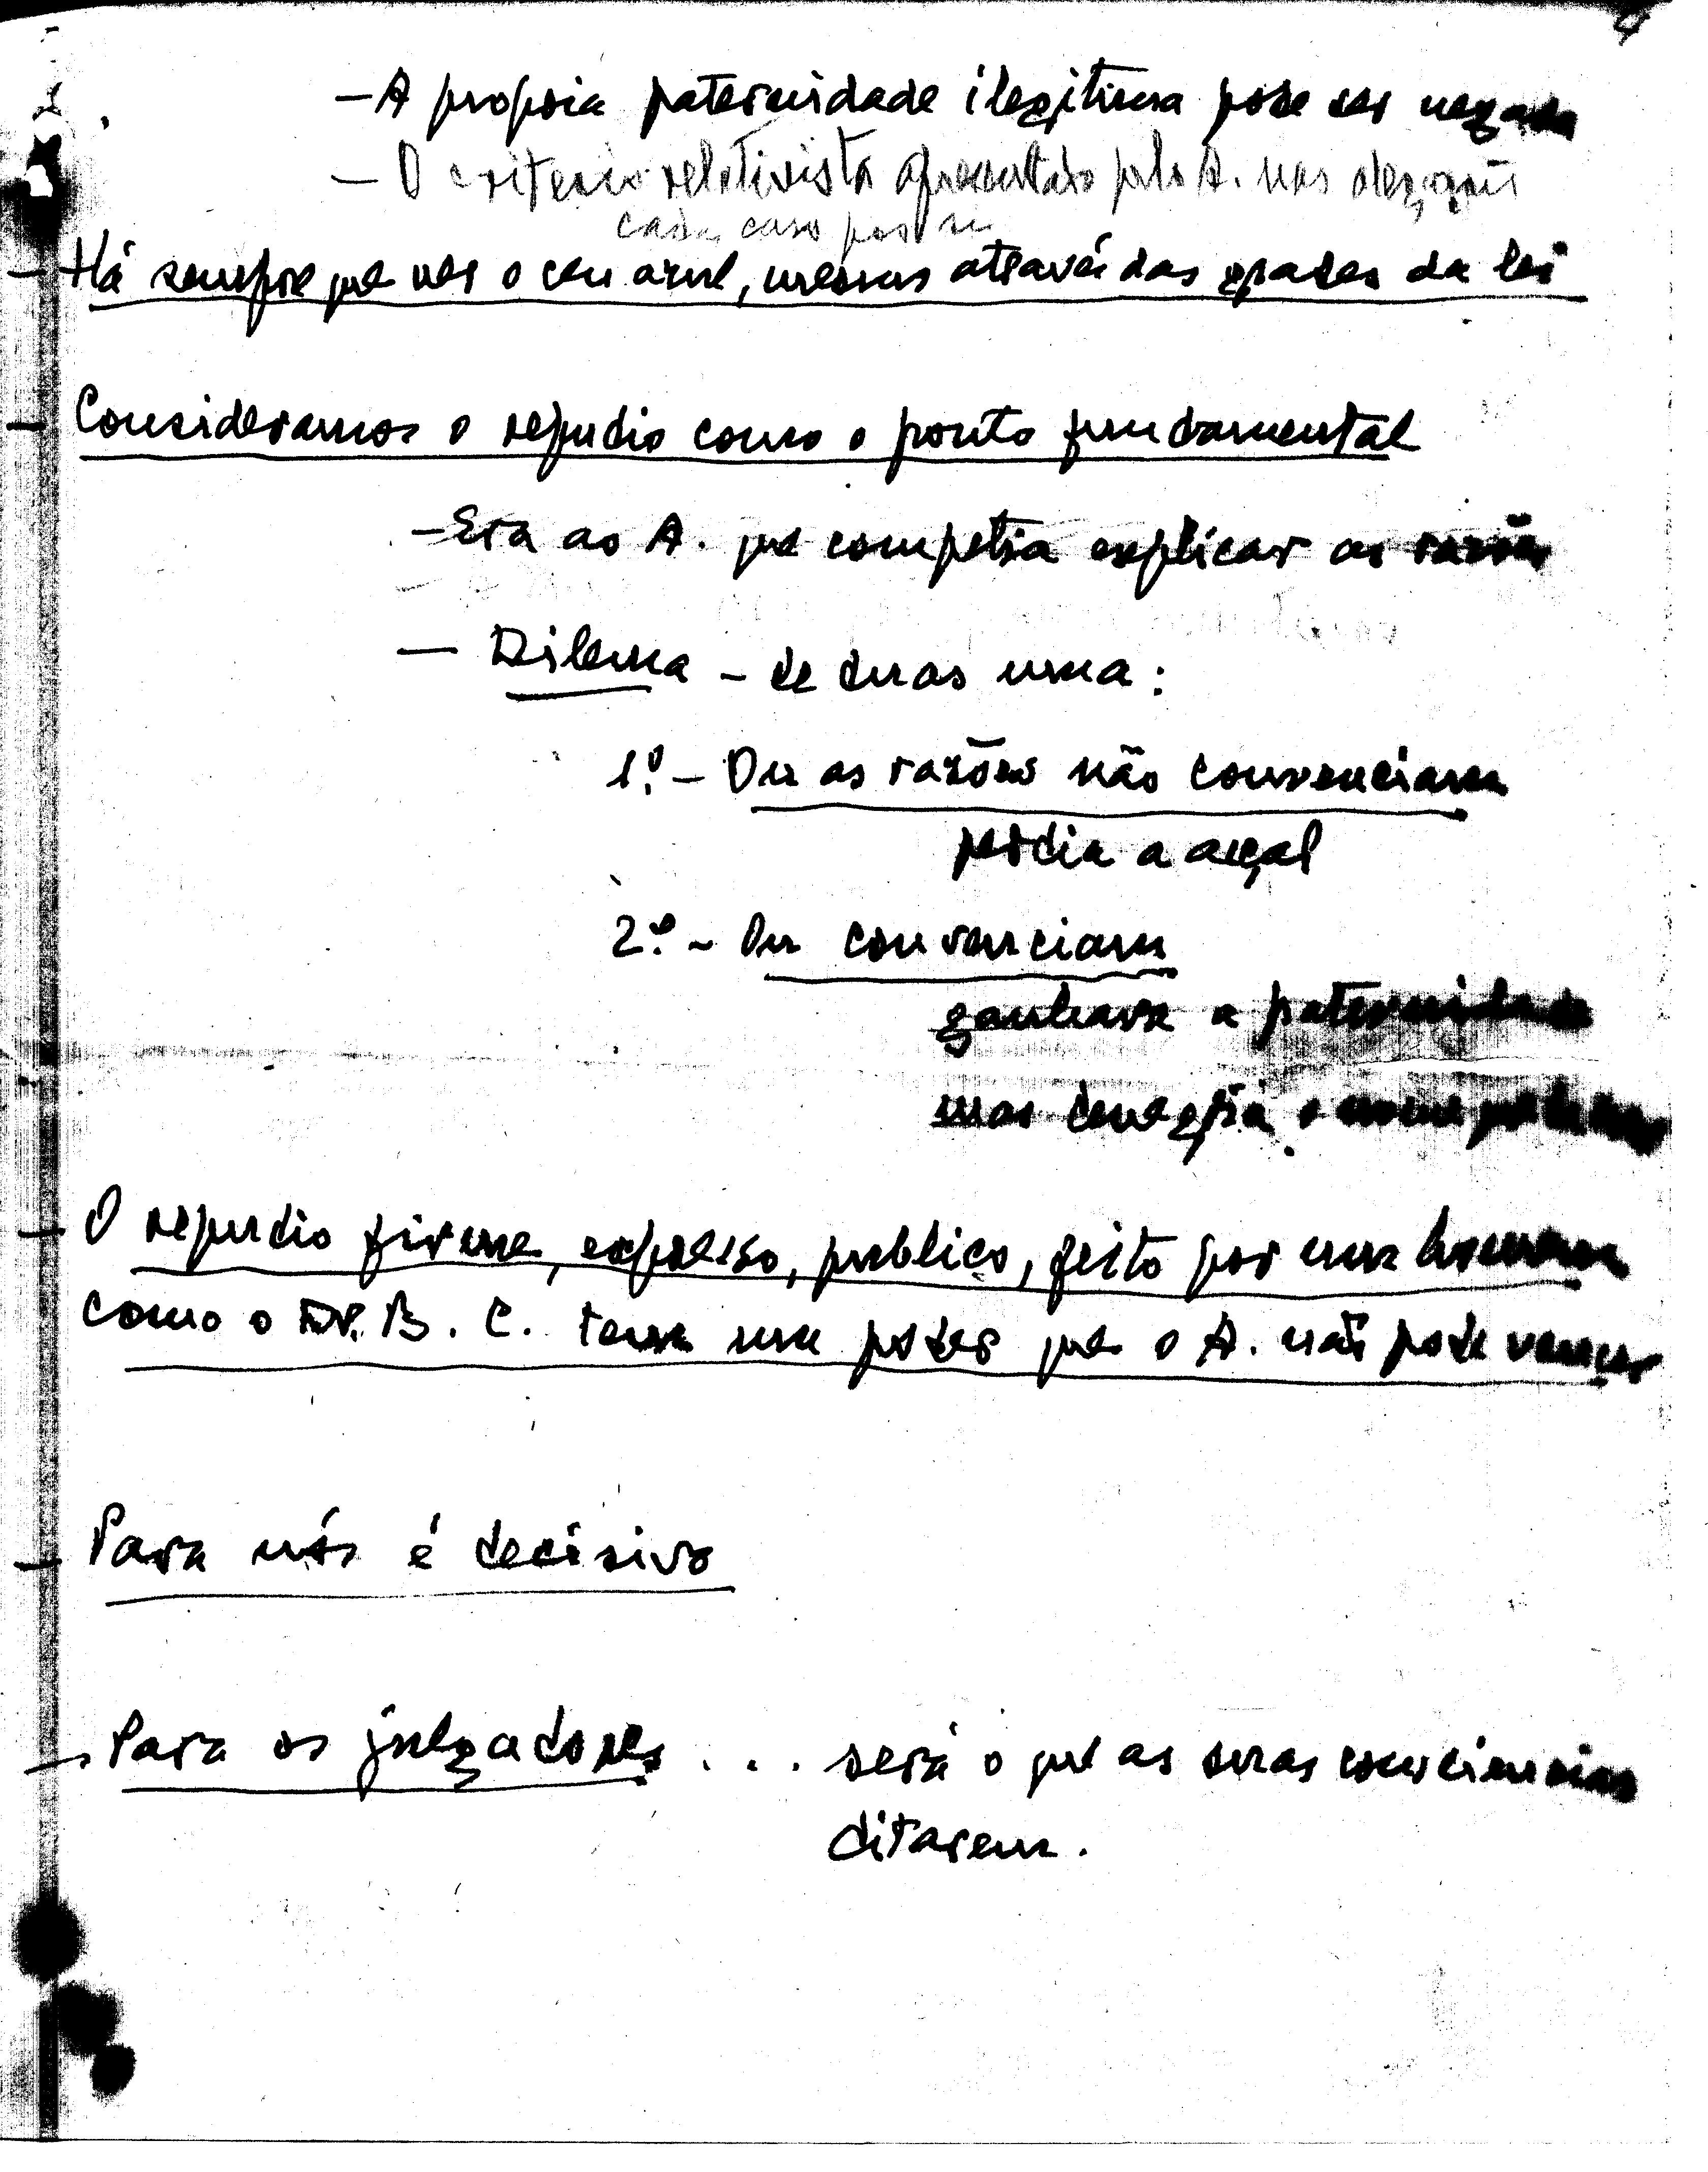 4
— A propria paternidade ilegitima pode ser negada
— O criterio relativista apresentado pelo A. nas alegações
cada caso por si
— Há sempre que ver o ceu azul, mesmo através das grades da lei
— Consideramos o repudio como o ponto fundamental
— Era ao A. que competia explicar as razões
— Dilema — de duas uma:
1.º — Ou as razões não convenciam
perdia a acçal
2.º — Ou convenciam
ganhava a paternidade
mas denegria o nome
— O repudio firme, expresso, publico, feito por um homem
como o Dr. B. C. tem um poder que o A. não pode vencer
— Para nós é decisivo
— Para os julgadores . . . será o que as suas consciencias
ditarem.